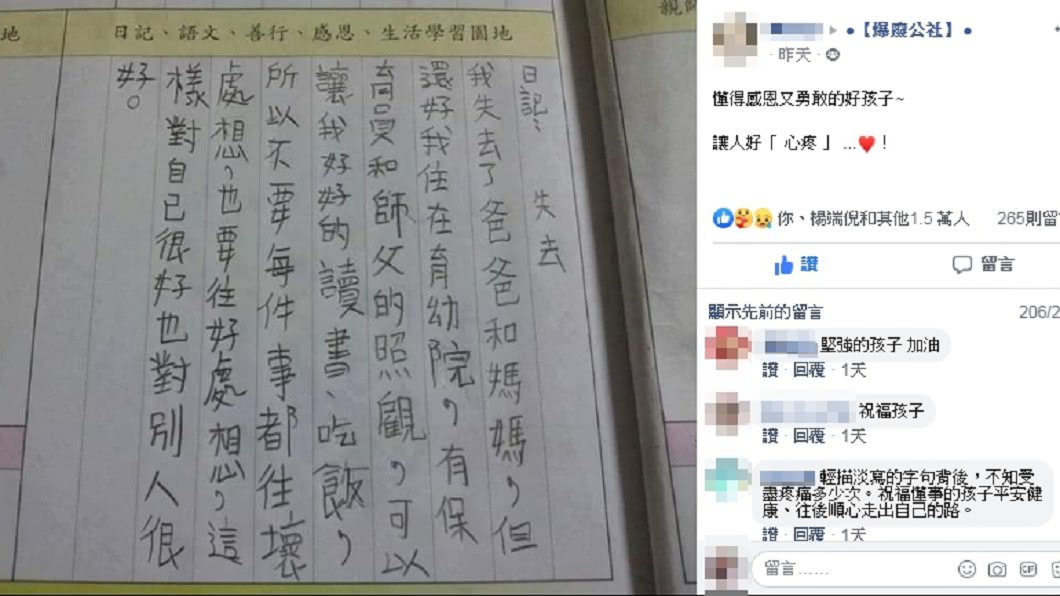 地
日記、語文、善行、感恩、生活學習園地
親師
日記： 失去
我失去了爸爸和媽媽，但
還好我住在育幼院，有保
育員和師父的照觀，可以
讓我好好的讀書、吃飯，
所以不要每件事都往壞
處想，也要往好處想，這
樣對自己很好也對別人很
好。
【爆廢公社】
昨天
懂得感恩又勇敢的好孩子~
讓人好「 心疼 」 ...❤！
你、楊端倪和其他1.5 萬人 265則留
讚 留言
顯示先前的留言 206/2
堅強的孩子 加油
讚 · 回覆 · 1天
祝福孩子
讚 · 回覆 · 1天
輕描淡寫的字句背後，不知受
盡疼痛多少次。祝福懂事的孩子平安健
康、往後順心走出自己的路。
讚 · 回覆 · 1天
留言......
GIF